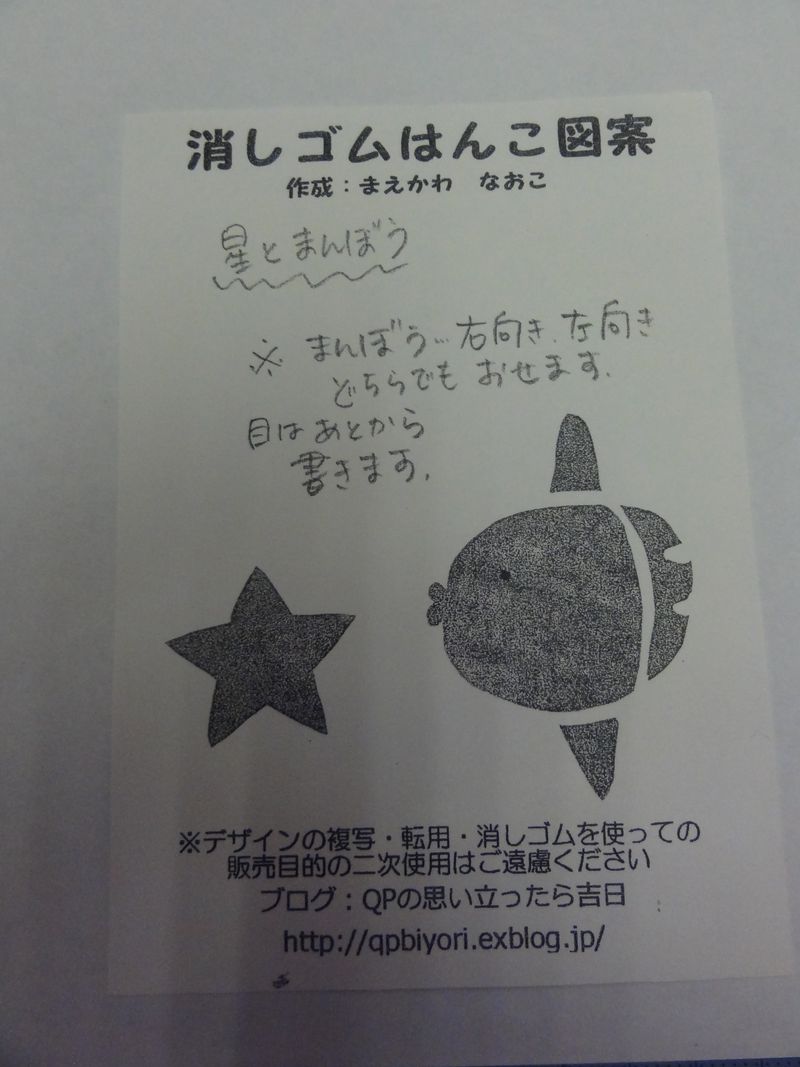 消しゴムはんこ図案
作成：まえかわ　なおこ
星とまんぼう
※ まんぼう…右向き、左向き
どちらでも おせます.
目は あとから
書きます.
※デザインの複写・転用・消しゴムを使っての
販売目的の二次使用はご遠慮ください
ブログ：QPの思い立ったら吉日
http://qpbiyori.exblog.jp/